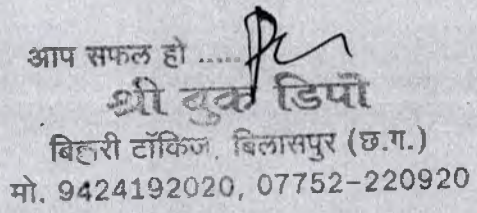 आप सफल हो .....
श्री बुक डिपो
बिहारी टॉकिज, बिलासपुर (छ.ग.)
मो. 9424192020, 07752-220920